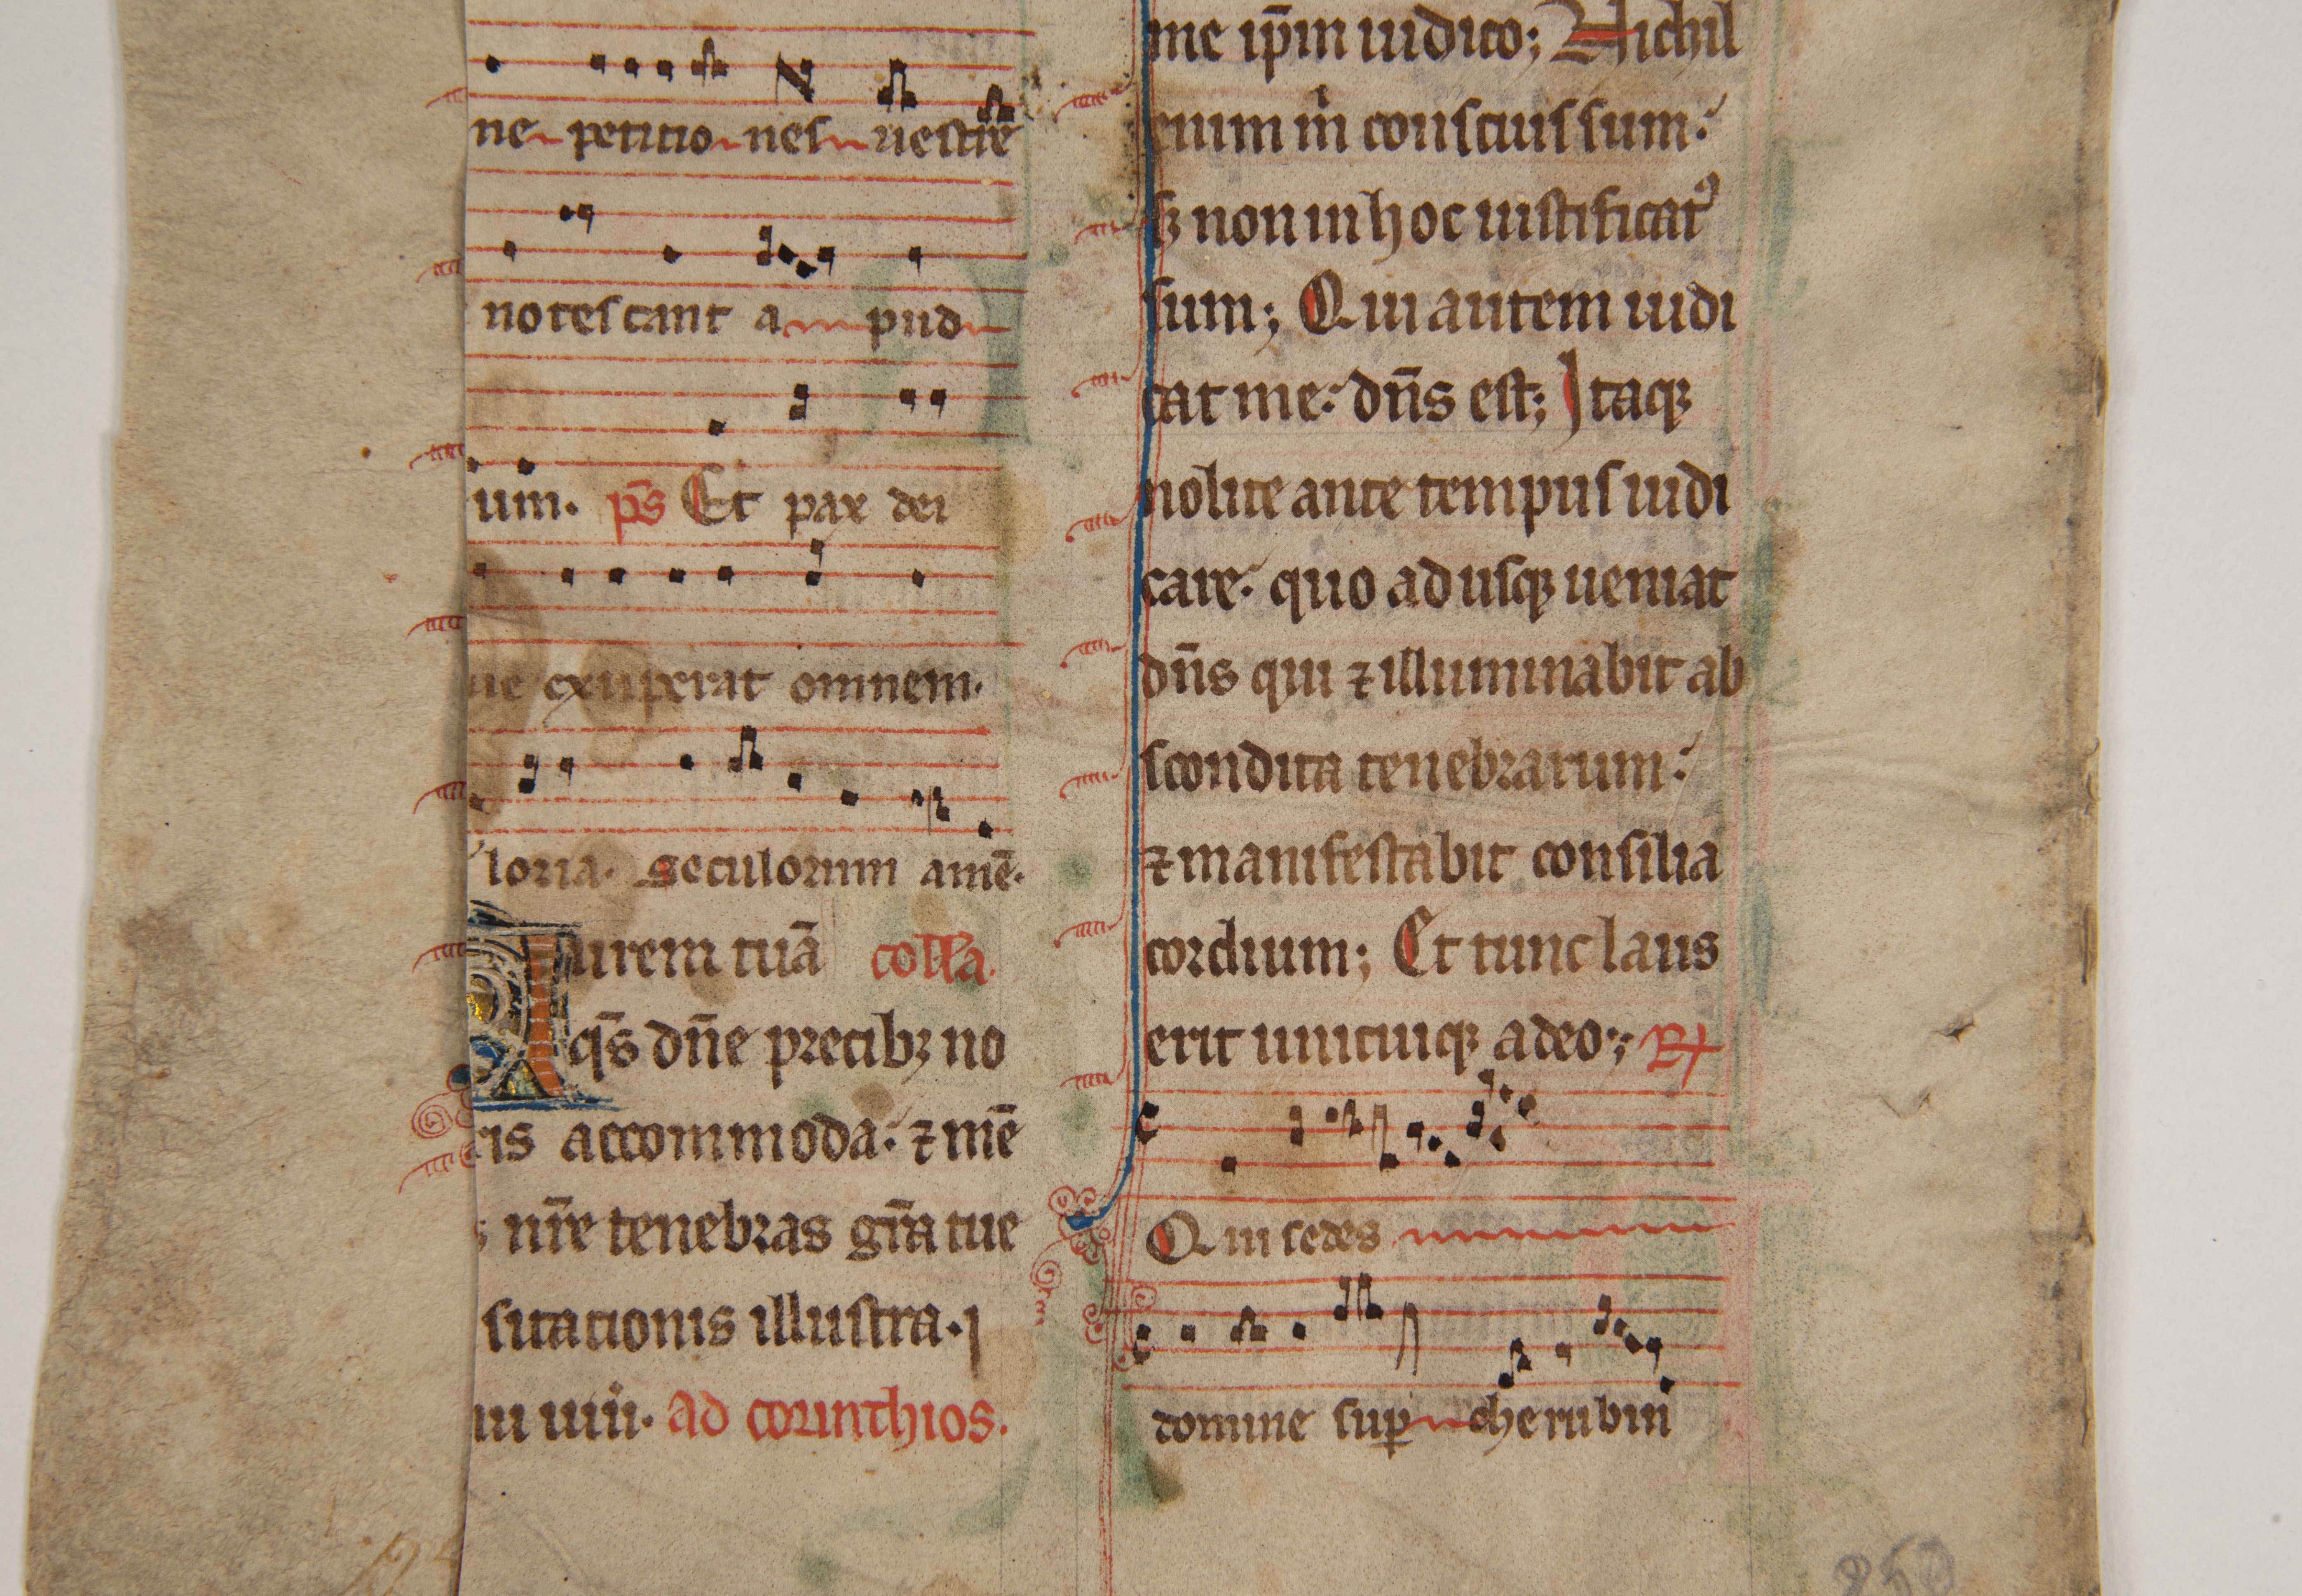 ne petitio nes uestre
notescant a pud
um. ps̄ Et pax dei
ue exuperat omnem.
loria. seculorum amē.
Aurem tuā coll̄a.
qs̄ dn̄e precibꝫ no
ris accommoda: ⁊ mē
s nr̄e tenebras gr̄a tue
sitationis illustra. i
iiii. Ad corinthios.
me ip̄m iudico; Nichil
enim m̄ conscius sum:
sꝫ non in hoc iustificatꝰ
sum; Qui autem iudi
cat me: dn̄s est; Itaqꝫ
nolite ante tempus iudi
care. quo adusqꝫ ueniat
dn̄s qui ⁊ illuminabit ab
scondita tenebrarum:
⁊ manifestabit consilia
cordium; Et tunc laus
erit unicuiqꝫ a deo; R
Qui sedes
domine suꝑ cherubin
250